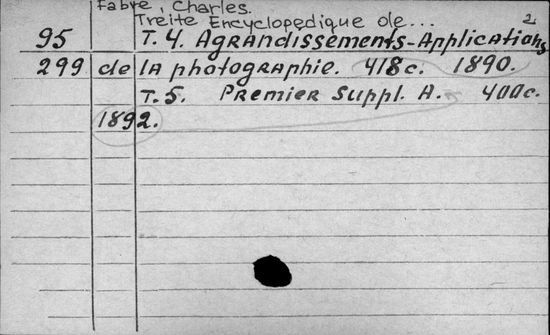 Fabre, Charles.
Treite Encyclopedique de... 2
95 T. 4. Agrandissements-Applications
299 de la photographie. 418c. 1890.
T. 5. Premier Suppl. A. 400c.
1892.